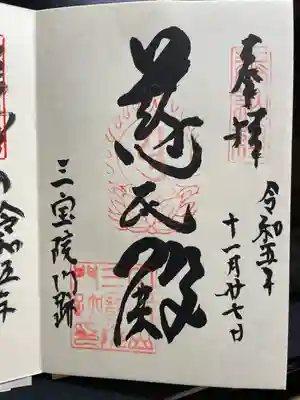 奉拝
令和五年
十一月廿七日
慈氏殿
三宝院門跡
令和五年